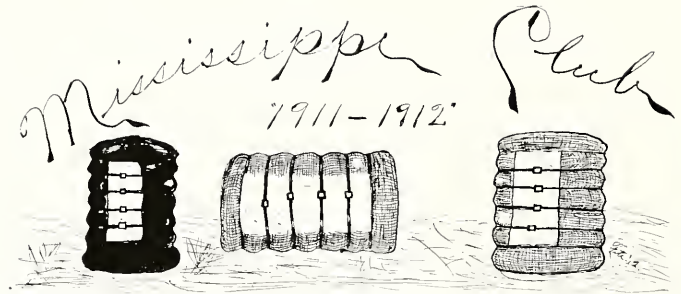 Mississippi Club
"1911-1912"